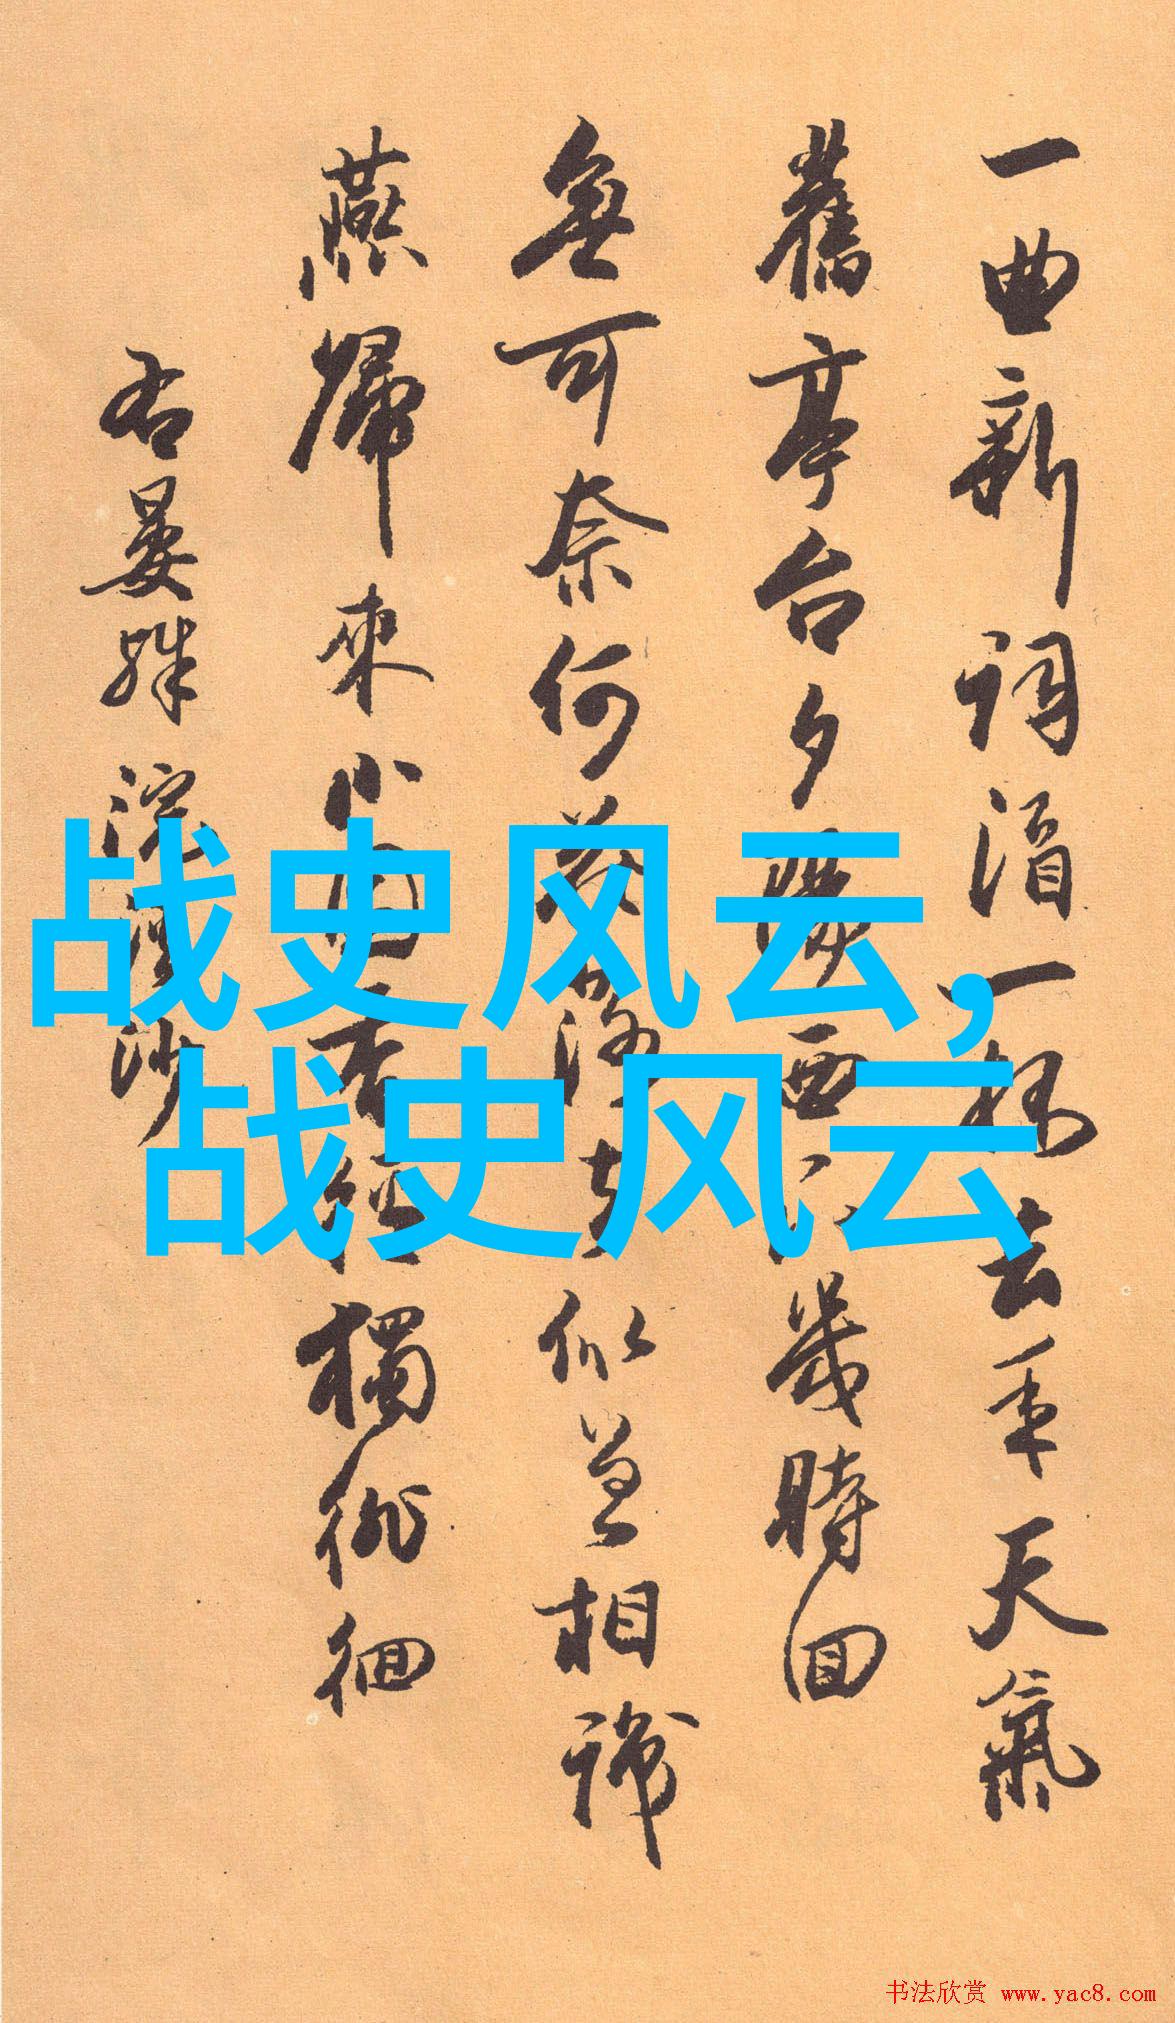 一曲新詞酒一杯去年天氣
舊亭台夕陽西下幾時回
無可奈何花落去似曾相識
燕歸來小園香徑獨徘徊
右晏殊浣溪沙
战史风云,
战史风云
书法欣赏 www.yac8.com